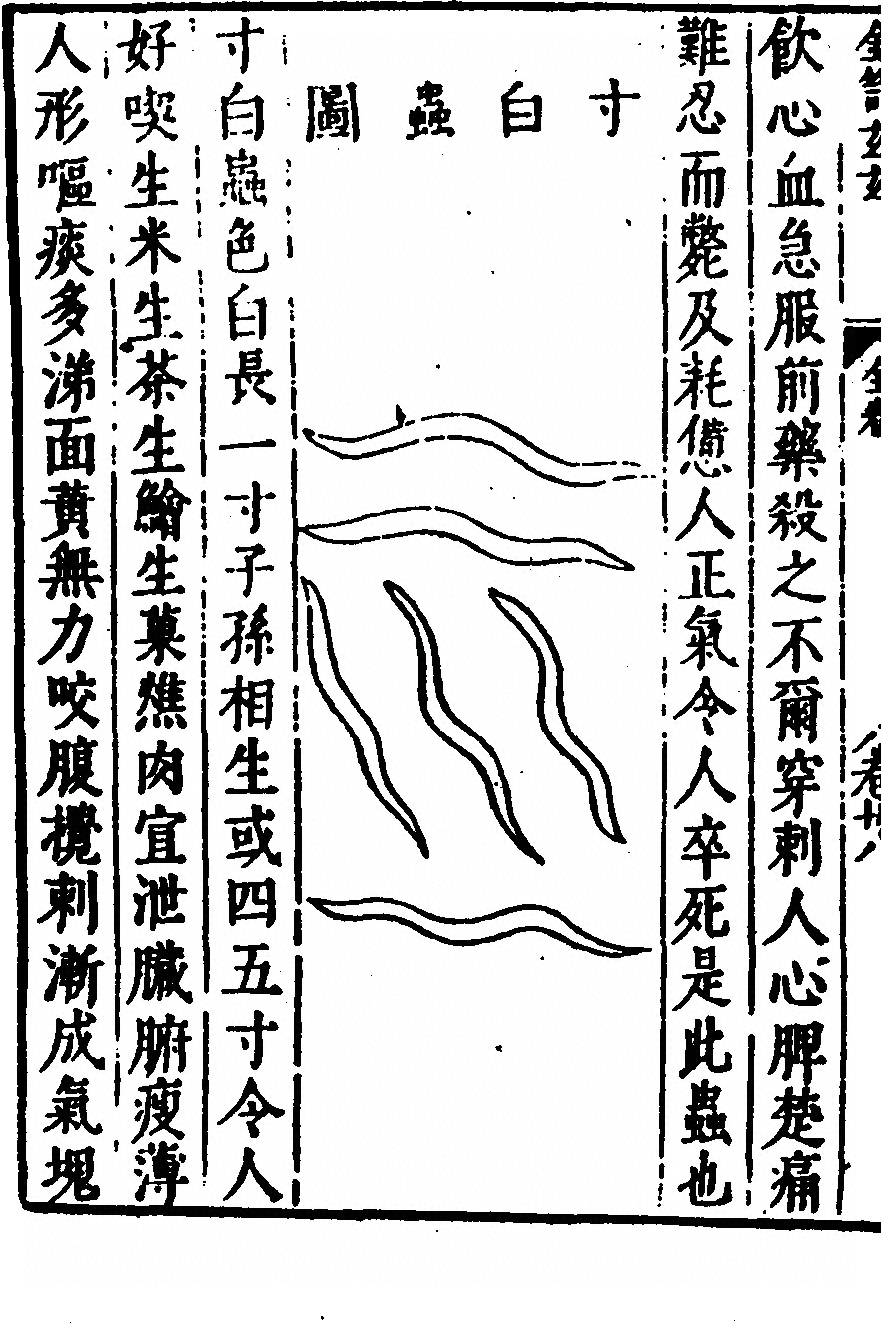 飲心血急服前藥殺之不爾穿刺人心脾楚痛
難忍而斃及耗憊人正氣令人卒死是此蟲也
寸白蟲圖
寸白蟲色白長一寸子孫相生或四五寸令人
好喫生米生茶生鱠生菓燋肉宜泄臟腑瘦薄
人形嘔痰多涕面黃無力咬腹攪刺漸成氣塊